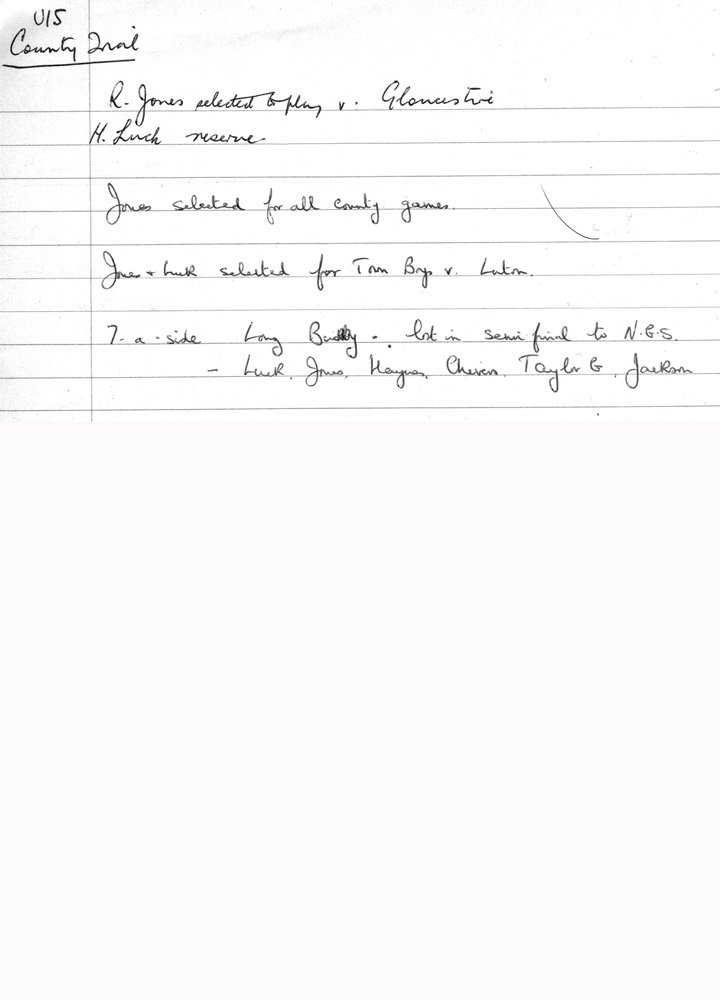 U15
County Trial
R. Jones selected to play v. Gloucestire
H. Luck reserve
Jones selected for all county games.
Jones + Luck selected for Town Boys v. Luton.
7-a-side Long Buckby. lost in semi final to N.G.S.
- Luck, Jones, Haynes, Chevins, Taylor G, Jackson